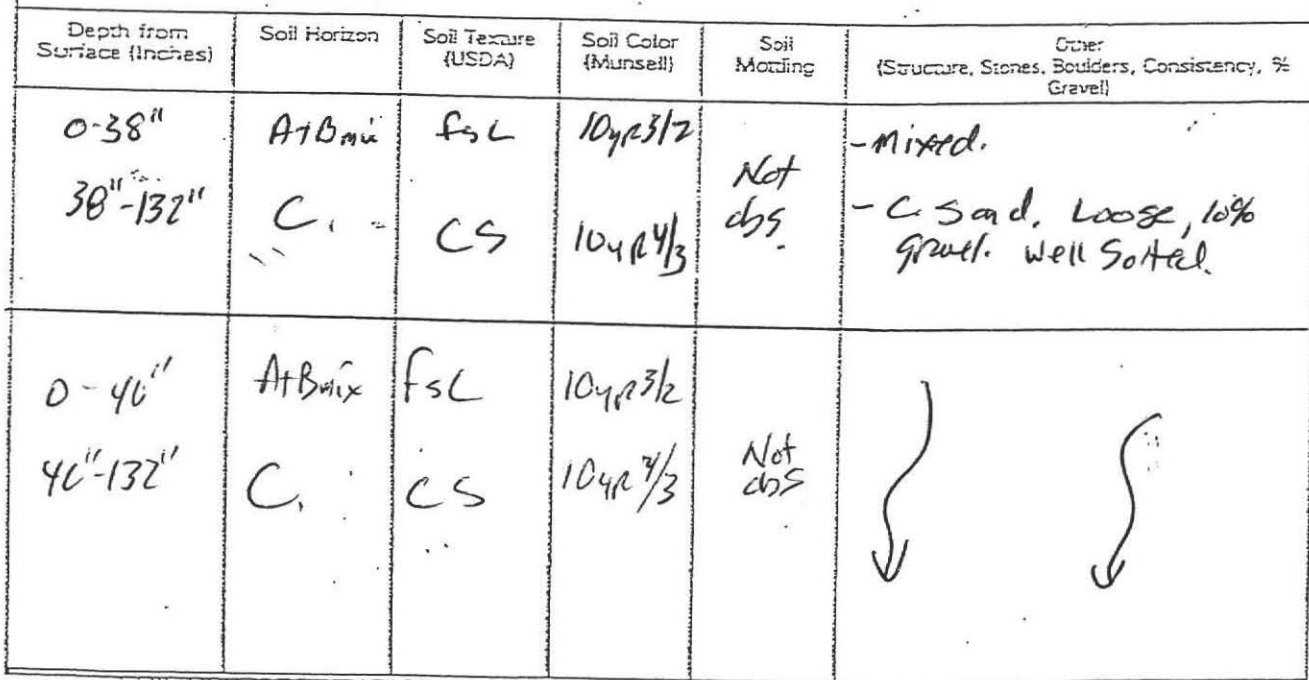 Depth from Surface (Inches) Soil Horizon Soil Texture (USDA) Soil Color (Munsell) Soil Mottling Other (Structure, Stones, Boulders, Consistency, % Gravel)
0-38" A+B mix fsL 10yR3/2 - Mixed.
Not obs.
38"-132" C1 CS 10yR 4/3 - C. Sand. Loose, 10%
gravel. Well Sorted.
0-40" A+B mix FsL 10yR3/2
40"-132" C1 CS 10yR 4/3 Not obs